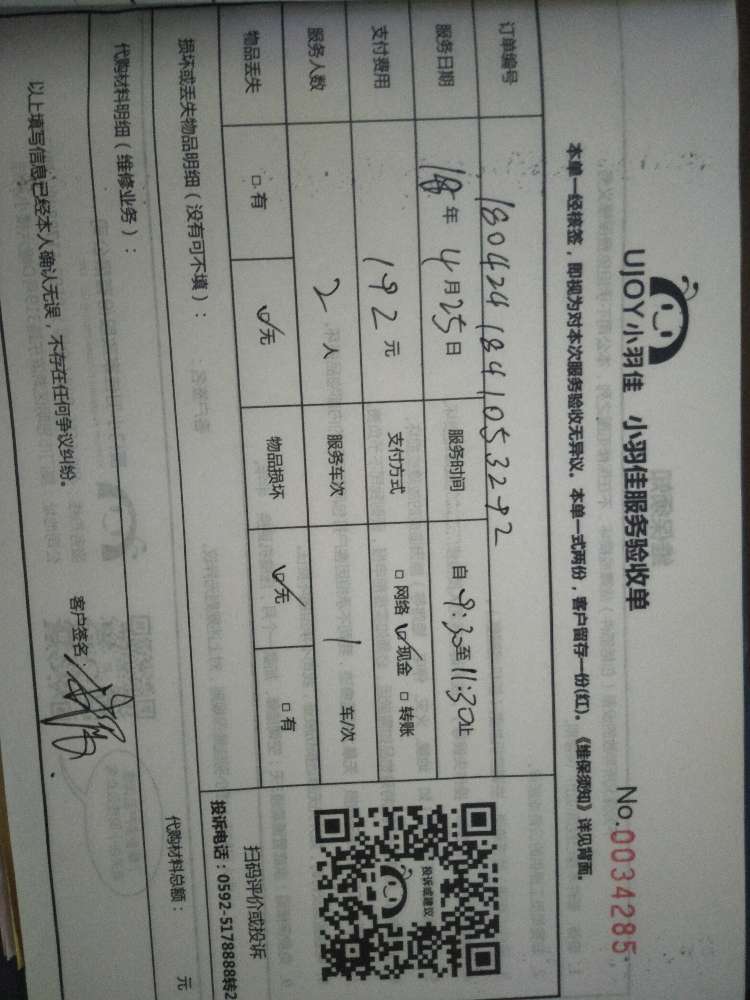 UJOY小羽佳 小羽佳服务验收单 No.0034285
本单一经核签，即视为对本次服务验收无异议。本单一式两份，客户留存一份(红)。《维保须知》详见背面。
订单编号 1804241841053292
服务日期 18年4月25日 服务时间 自9:30至11:30止
支付费用 192元 支付方式 □网络 ☑现金 □转账
服务人数 2人 服务车次 1车/次
物品丢失 □有 ☑无 物品损坏 ☑无 □有
损坏或丢失物品明细（没有可不填）：
投诉或建议
扫码评价或投诉
投诉电话：0592-5178888转2
代购材料明细（维修业务）： 代购材料总额： 元
以上填写信息已经本人确认无误，不存在任何争议纠纷。 客户签名：